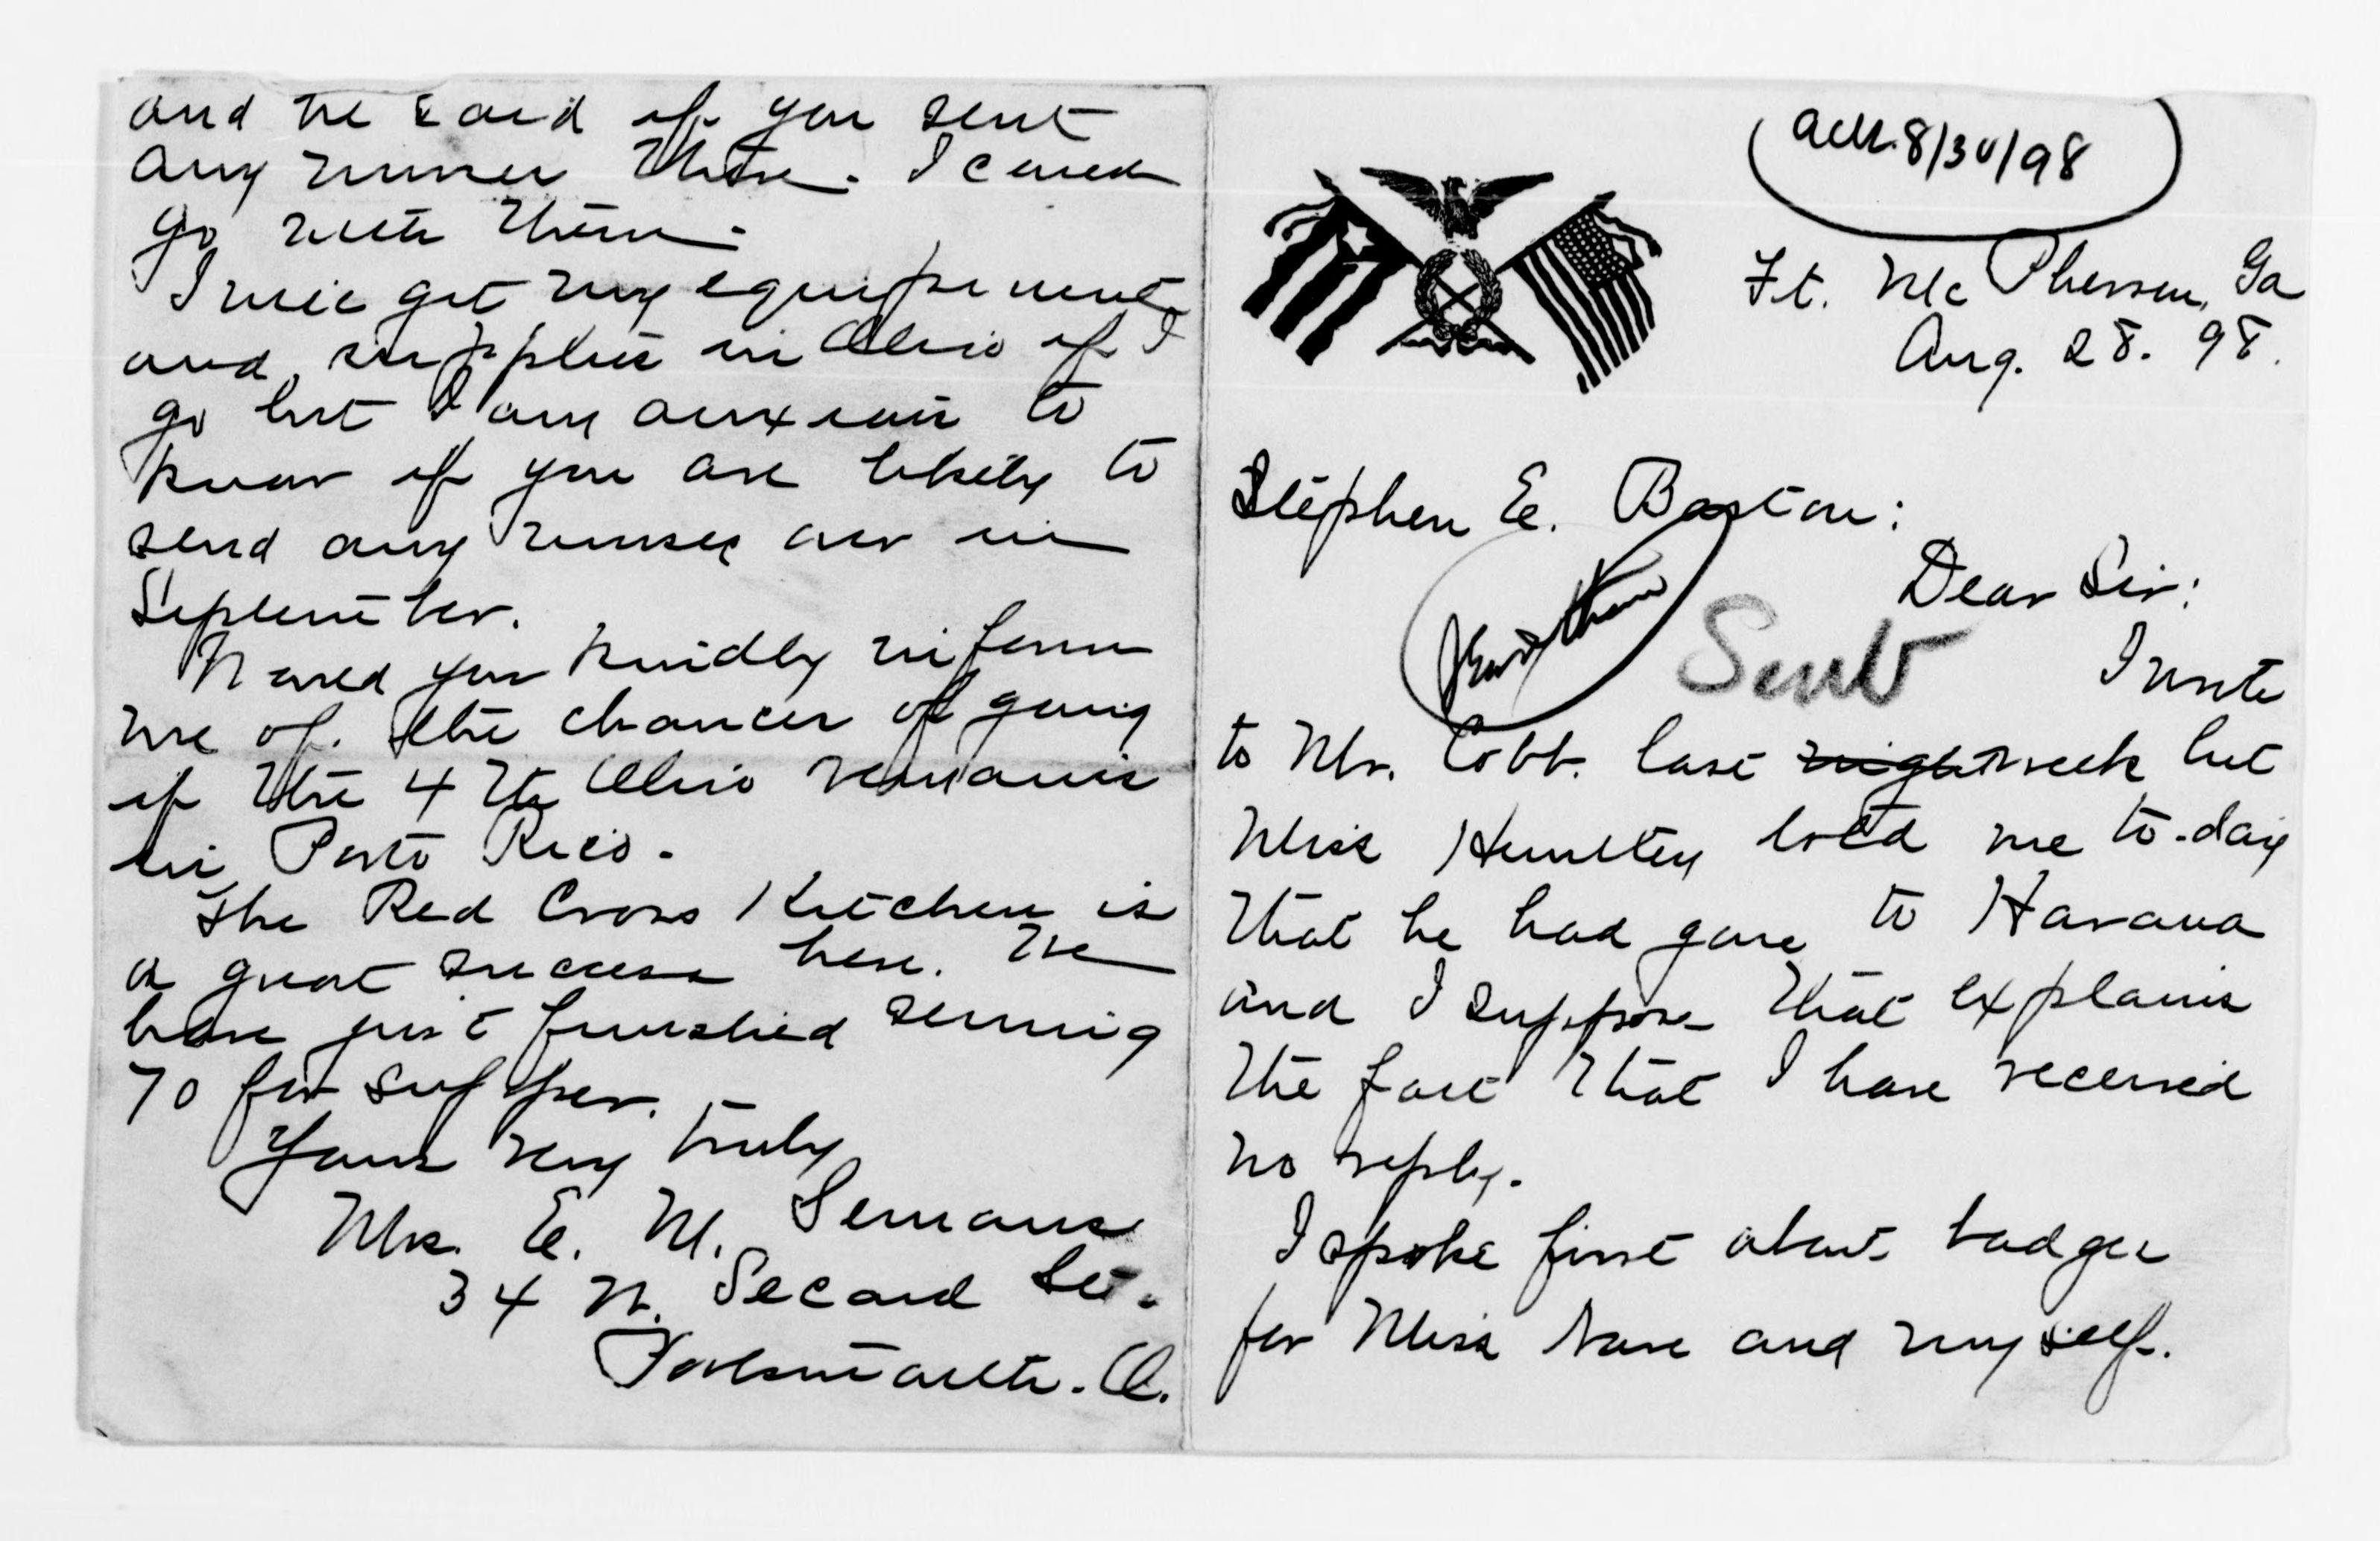 and he said if you sent
any nurses there. I could
go with them.
I will get my equipment
and supplies in Ohio if I
go but I am anxious to
know if you are likely to
send any nurses over in
September.
Would you kindly inform
me of the chances of going
if the 4th Ohio remains
in Porto Rico.
The Red Cross Kitchen is
a great success here. We
have just finished serving
70 for supper.
Yours very truly
Mrs. E. M. Semans
34 N. Second St.
Portsmouth. O.
8/30/98
Ft. McPherson, Ga
Aug. 28. 98.
Stephen E. Barton:
Dear Sir:
Sent
I wrote
to Mr. Cobb. last night week but
Miss Huntley told me to-day
that he had gone to Havana
and I suppose that explains
the fact that I have received
no reply.
I spoke first about badges
for Miss and myself.